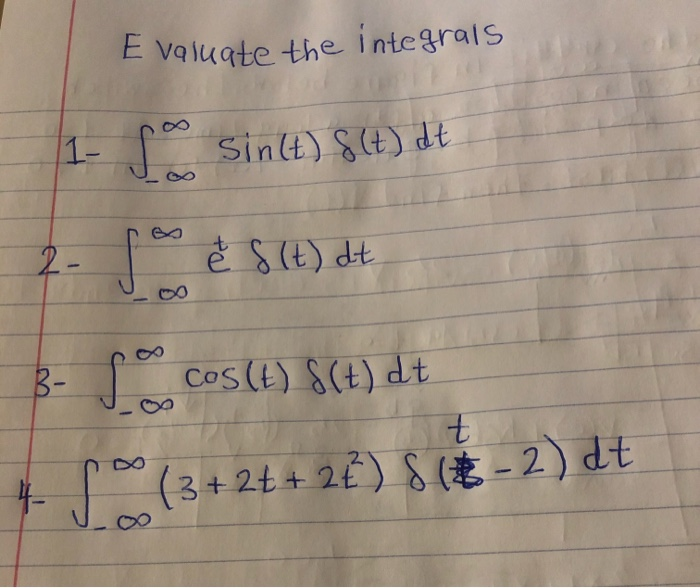 Evaluate the integrals
1- ∫_{-∞}^{∞} sin(t) δ(t) dt
2- ∫_{-∞}^{∞} e^t δ(t) dt
3- ∫_{-∞}^{∞} cos(t) δ(t) dt
4- ∫_{-∞}^{∞} (3+2t+2t²) δ(t-2) dt